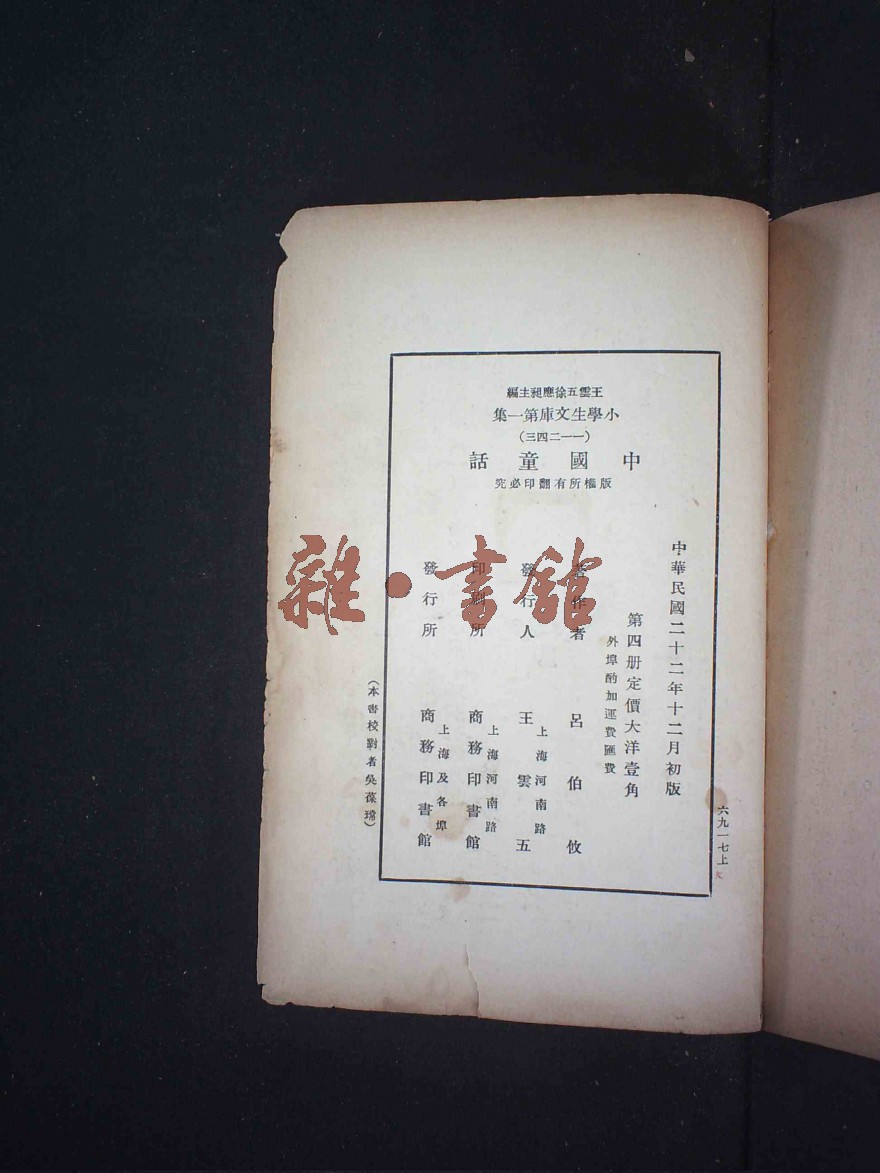 王雲五徐應昶主編
小學生文庫第一集
(一一二四三)
中國童話
版權所有翻印必究
中華民國二十二年十二月初版
第四册定價大洋壹角
外埠酌加運費匯費
著作者 呂伯攸
發行人 王雲五
上海河南路
印刷所 商務印書館
上海河南路
發行所 商務印書館
上海及各埠
(本書校對者吳葆瑺)
六九一七上
雜·書館